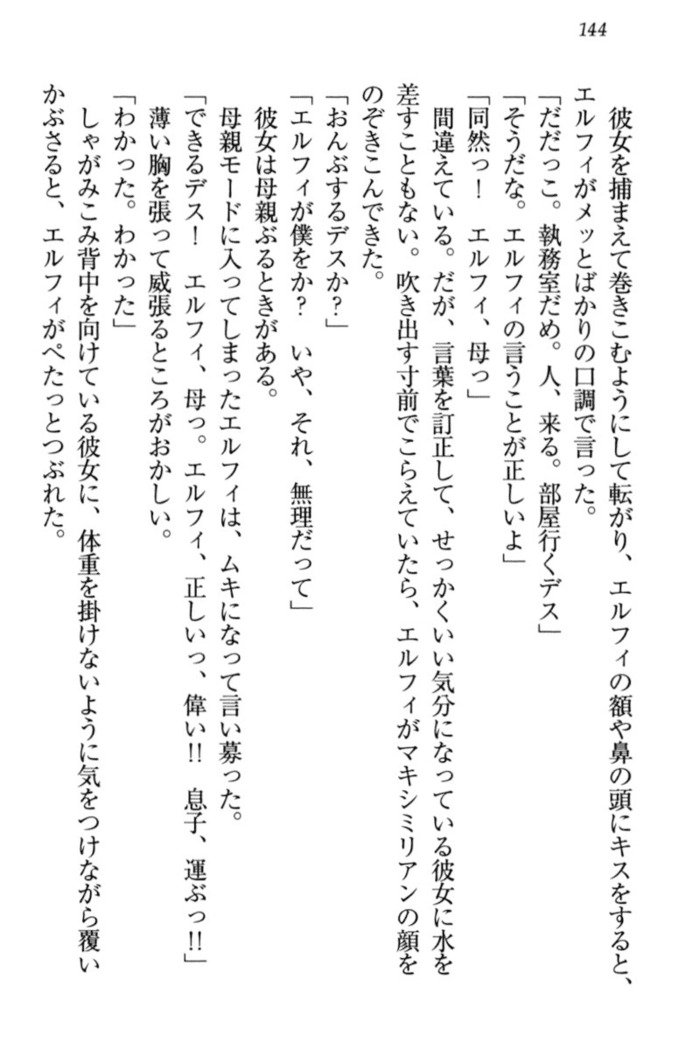 144
彼女を捕まえて巻きこむようにして転がり、エルフィの額や鼻の頭にキスをすると、
エルフィがメッとばかりの口調で言った。
「だだっこ。執務室だめ。人、来る。部屋行くデス」
「そうだな。エルフィの言うことが正しいよ」
「同然っ！　エルフィ、母っ」
間違えている。だが、言葉を訂正して、せっかくいい気分になっている彼女に水を
差すこともない。吹き出す寸前でこらえていたら、エルフィがマキシミリアンの顔を
のぞきこんできた。
「おんぶするデスか？」
「エルフィが僕をか？　いや、それ、無理だって」
彼女は母親ぶるときがある。
母親モードに入ってしまったエルフィは、ムキになって言い募った。
「できるデス！　エルフィ、母っ。エルフィ、正しいっ、偉い!!　息子、運ぶっ!!」
薄い胸を張って威張るところがおかしい。
「わかった。わかった」
しゃがみこみ背中を向けている彼女に、体重を掛けないように気をつけながら覆い
かぶさると、エルフィがぺたっとつぶれた。